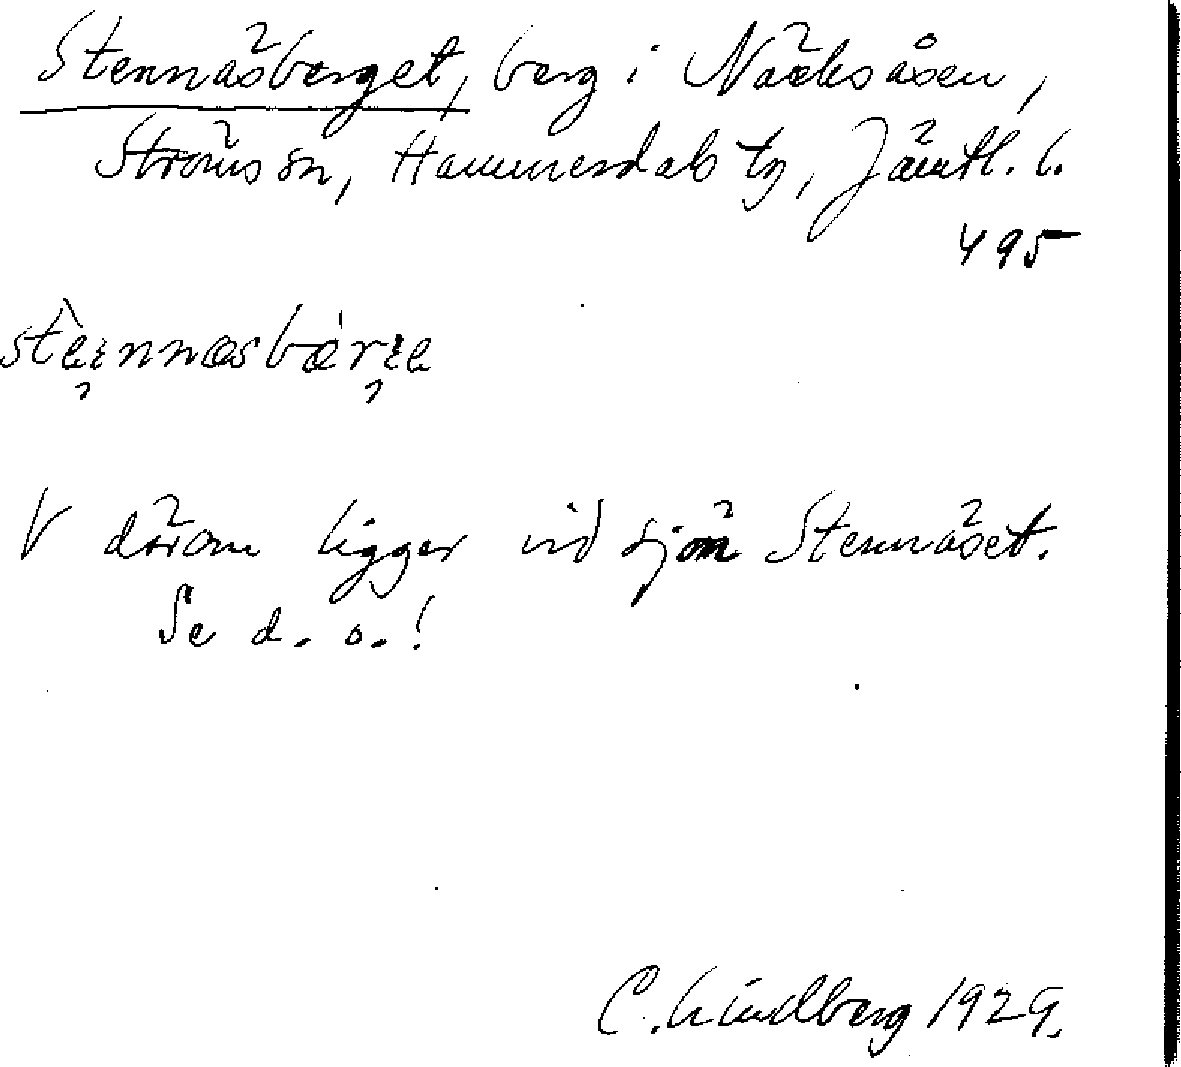 Stennäsberget, berg i Näcksåsen,
Ströms sn, Hammerdals tg, Jämtl. l.
495
V därom ligger vid sjön Stennäset.
Se d. o.!
C. Lindberg 1929.